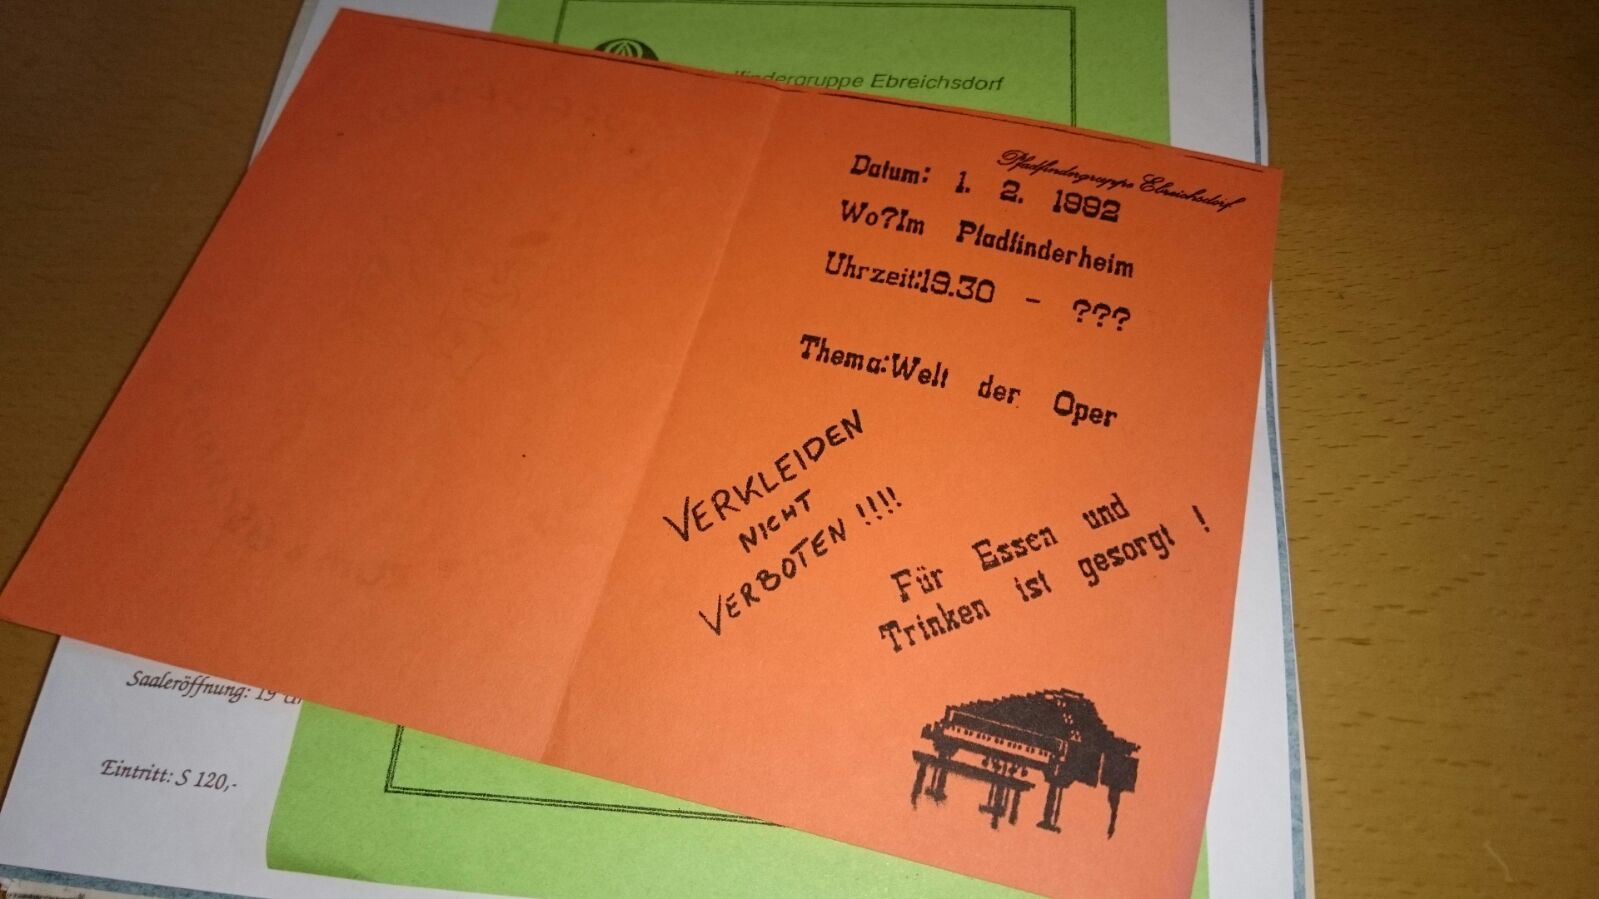 Ebreichsdorf
Pfadfindergruppe Ebreichsdorf
Datum: 1. 2. 1992
Wo?Im Pfadfinderheim
Uhrzeit:19.30 - ???
Thema:Welt der Oper
VERKLEIDEN
NICHT
VERBOTEN !!!!
Für Essen und
Trinken ist gesorgt !
Saaleröffnung: 19
Eintritt: S 120,-